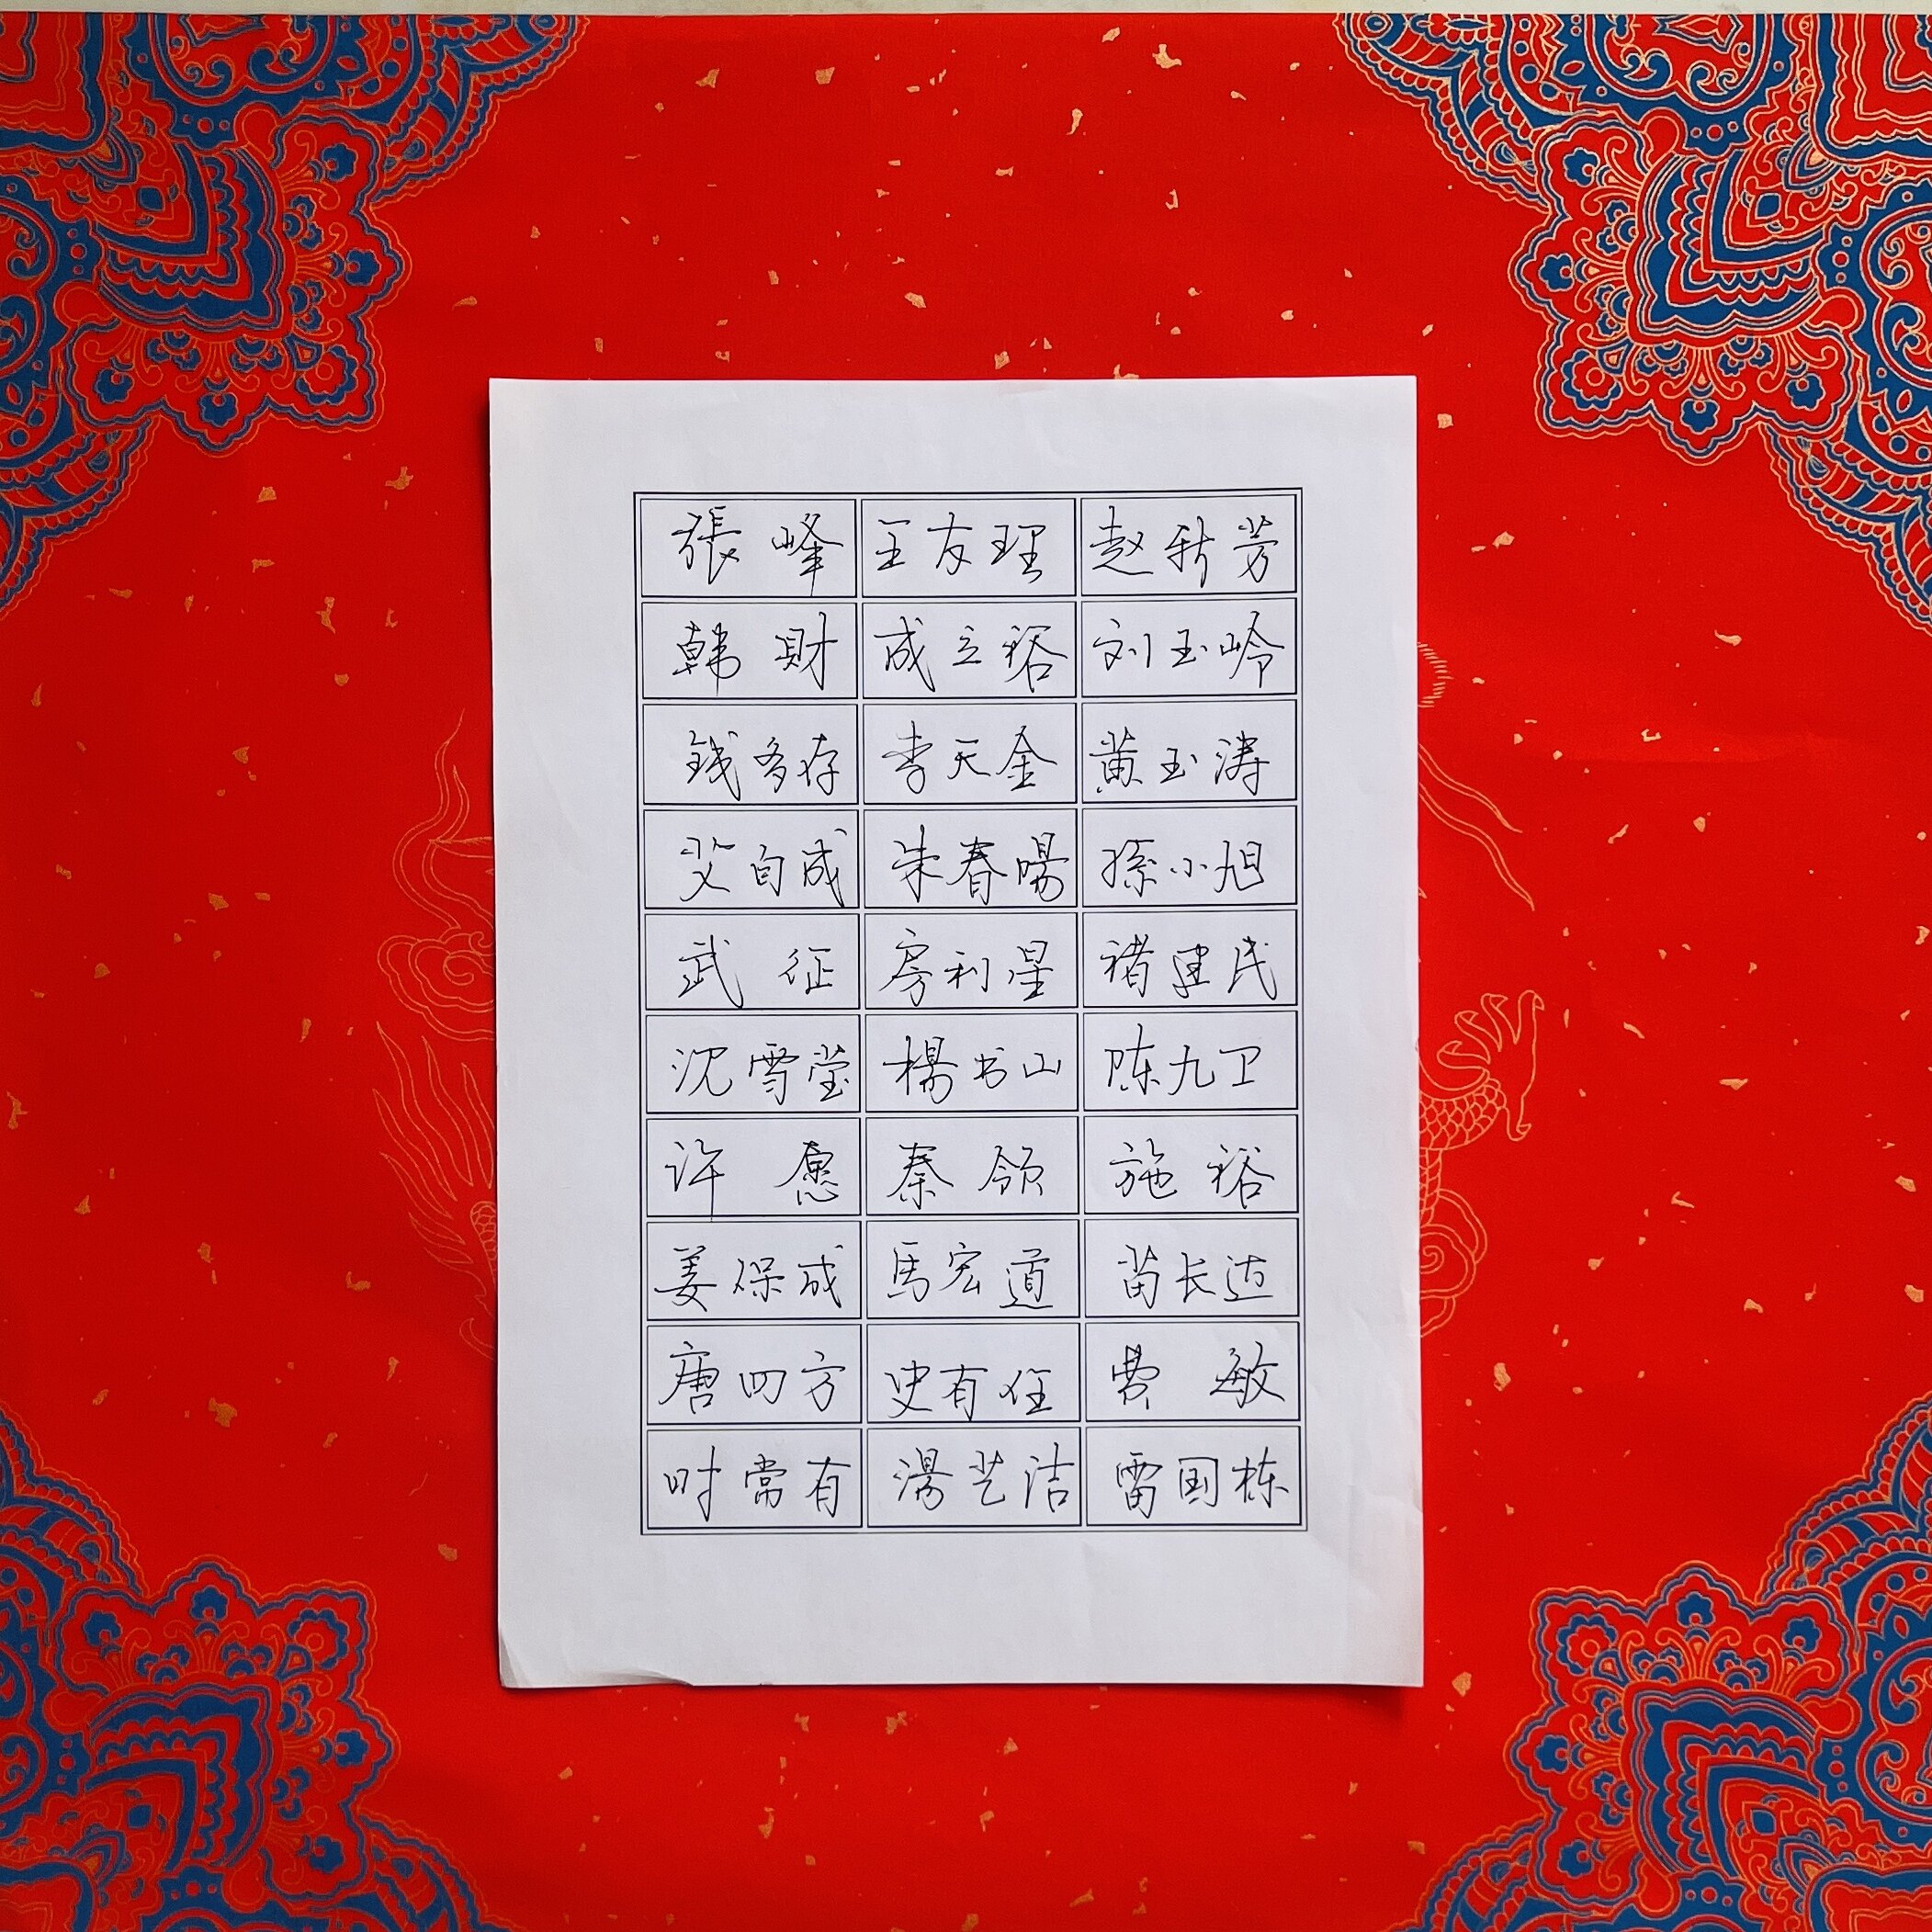 張峰 王友理 赵新芳
韩財 成立裕 刘玉岭
钱多存 李天金 黄玉涛
艾自成 朱春暘 孫小旭
武征 房利星 褚建民
沈雪莹 楊书山 陈九卫
许愿 秦领 施裕
姜保成 馬宏道 苗长达
唐四方 史有住 费敏
时常有 湯艺洁 雷国栋